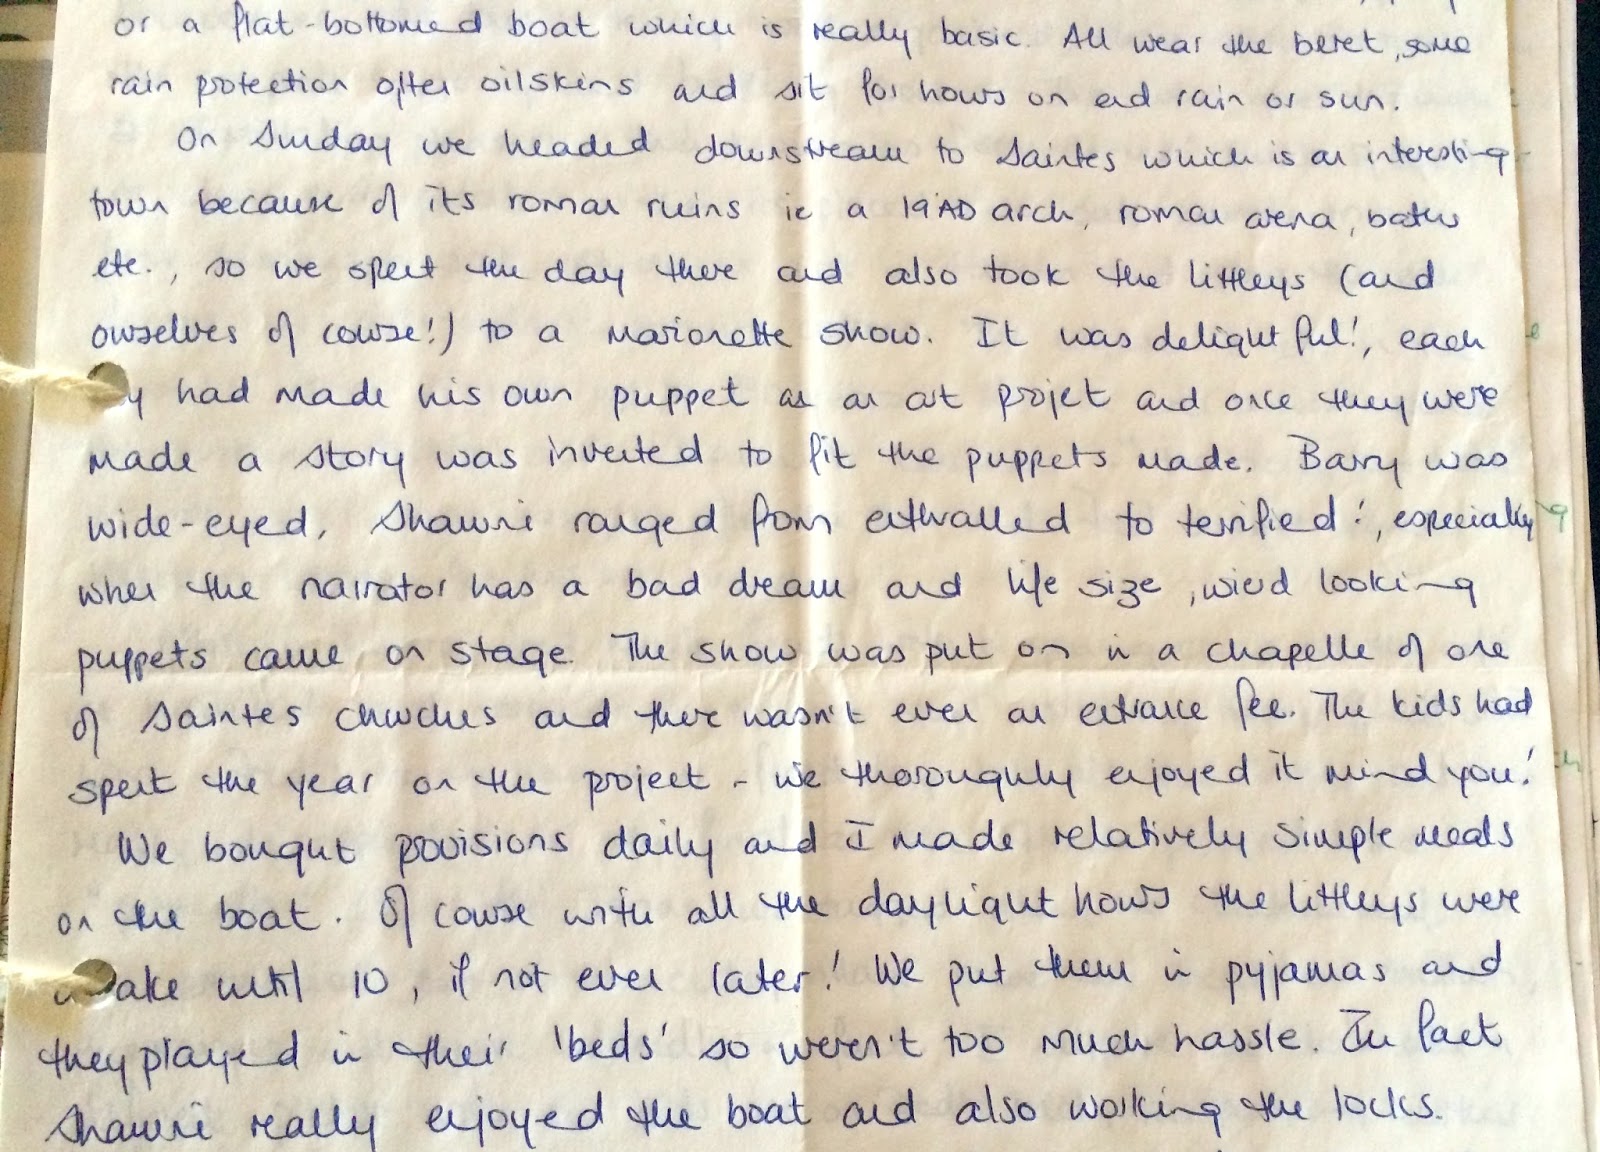 or a flat-bottomed boat which is really basic. All wear the beret, some
rain protection often oilskins and sit for hours on end rain or sun.
On Sunday we headed downstream to Saintes which is an interesting
town because of its roman ruins ie a 19AD arch, roman arena, baths
etc., so we spent the day there and also took the littleys (and
ourselves of course!) to a marionette show. It was delightful!, each
y had made his own puppet as an art projet and once they were
made a story was invented to fit the puppets made. Barry was
wide-eyed, Shawni ranged from enthralled to terrified!, especially
when the narrator has a bad dream and life size, wierd looking
puppets came on stage. The show was put on in a chapelle of one
of Saintes churches and there wasn't even an entrance fee. The kids had
spent the year on the project - we thoroughly enjoyed it mind you!
We bought provisions daily and I made relatively simple meals
on the boat. Of course with all the daylight hours the littleys were
awake until 10, if not even later! We put them in pyjamas and
they played in their 'beds' so weren't too much hassle. In fact
Shawni really enjoyed the boat and also working the locks.